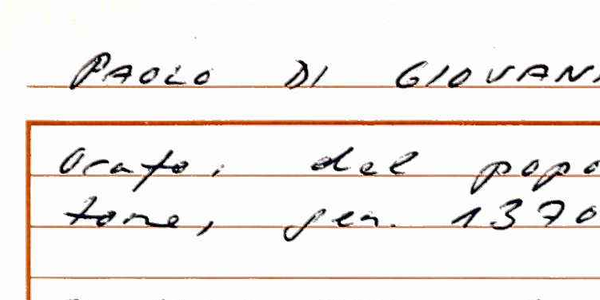 PAOLO DI GIOVAN
Orafo, del popo
tone, gen. 1370